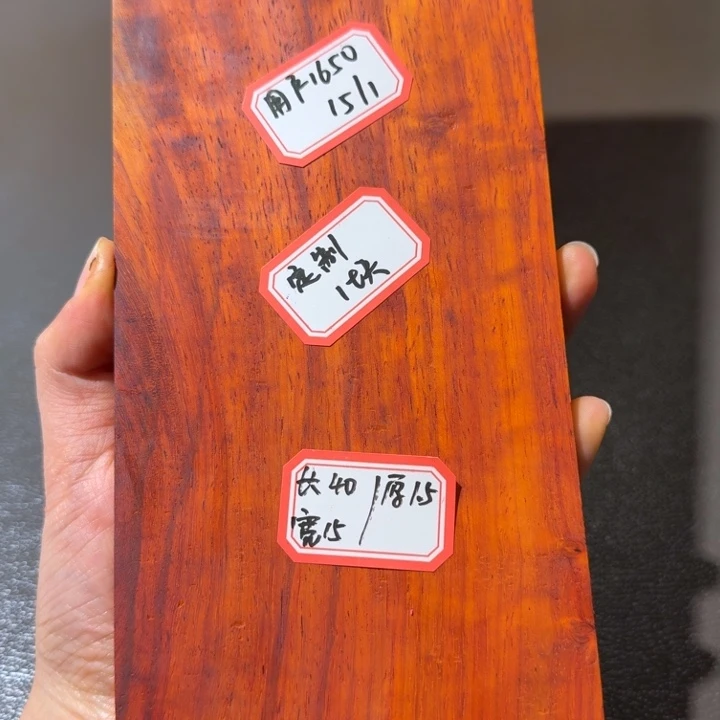 用户1650
15/1
定制
1块
长40/厚15
宽15